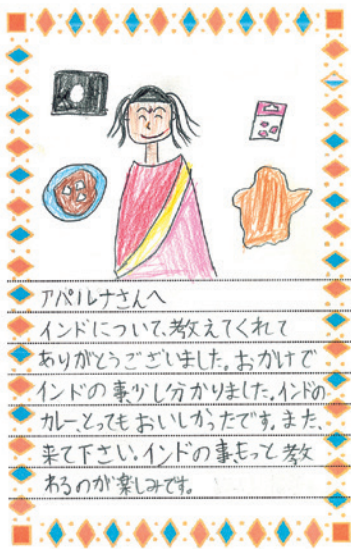 アパルナさんへ
インドについて、教えてくれて
ありがとうございました。おかげで
インドの事、少し分かりました。インドの
カレー、とってもおいしかったです。また、
来て下さい。インドの事、もっと教
わるのが楽しみです。